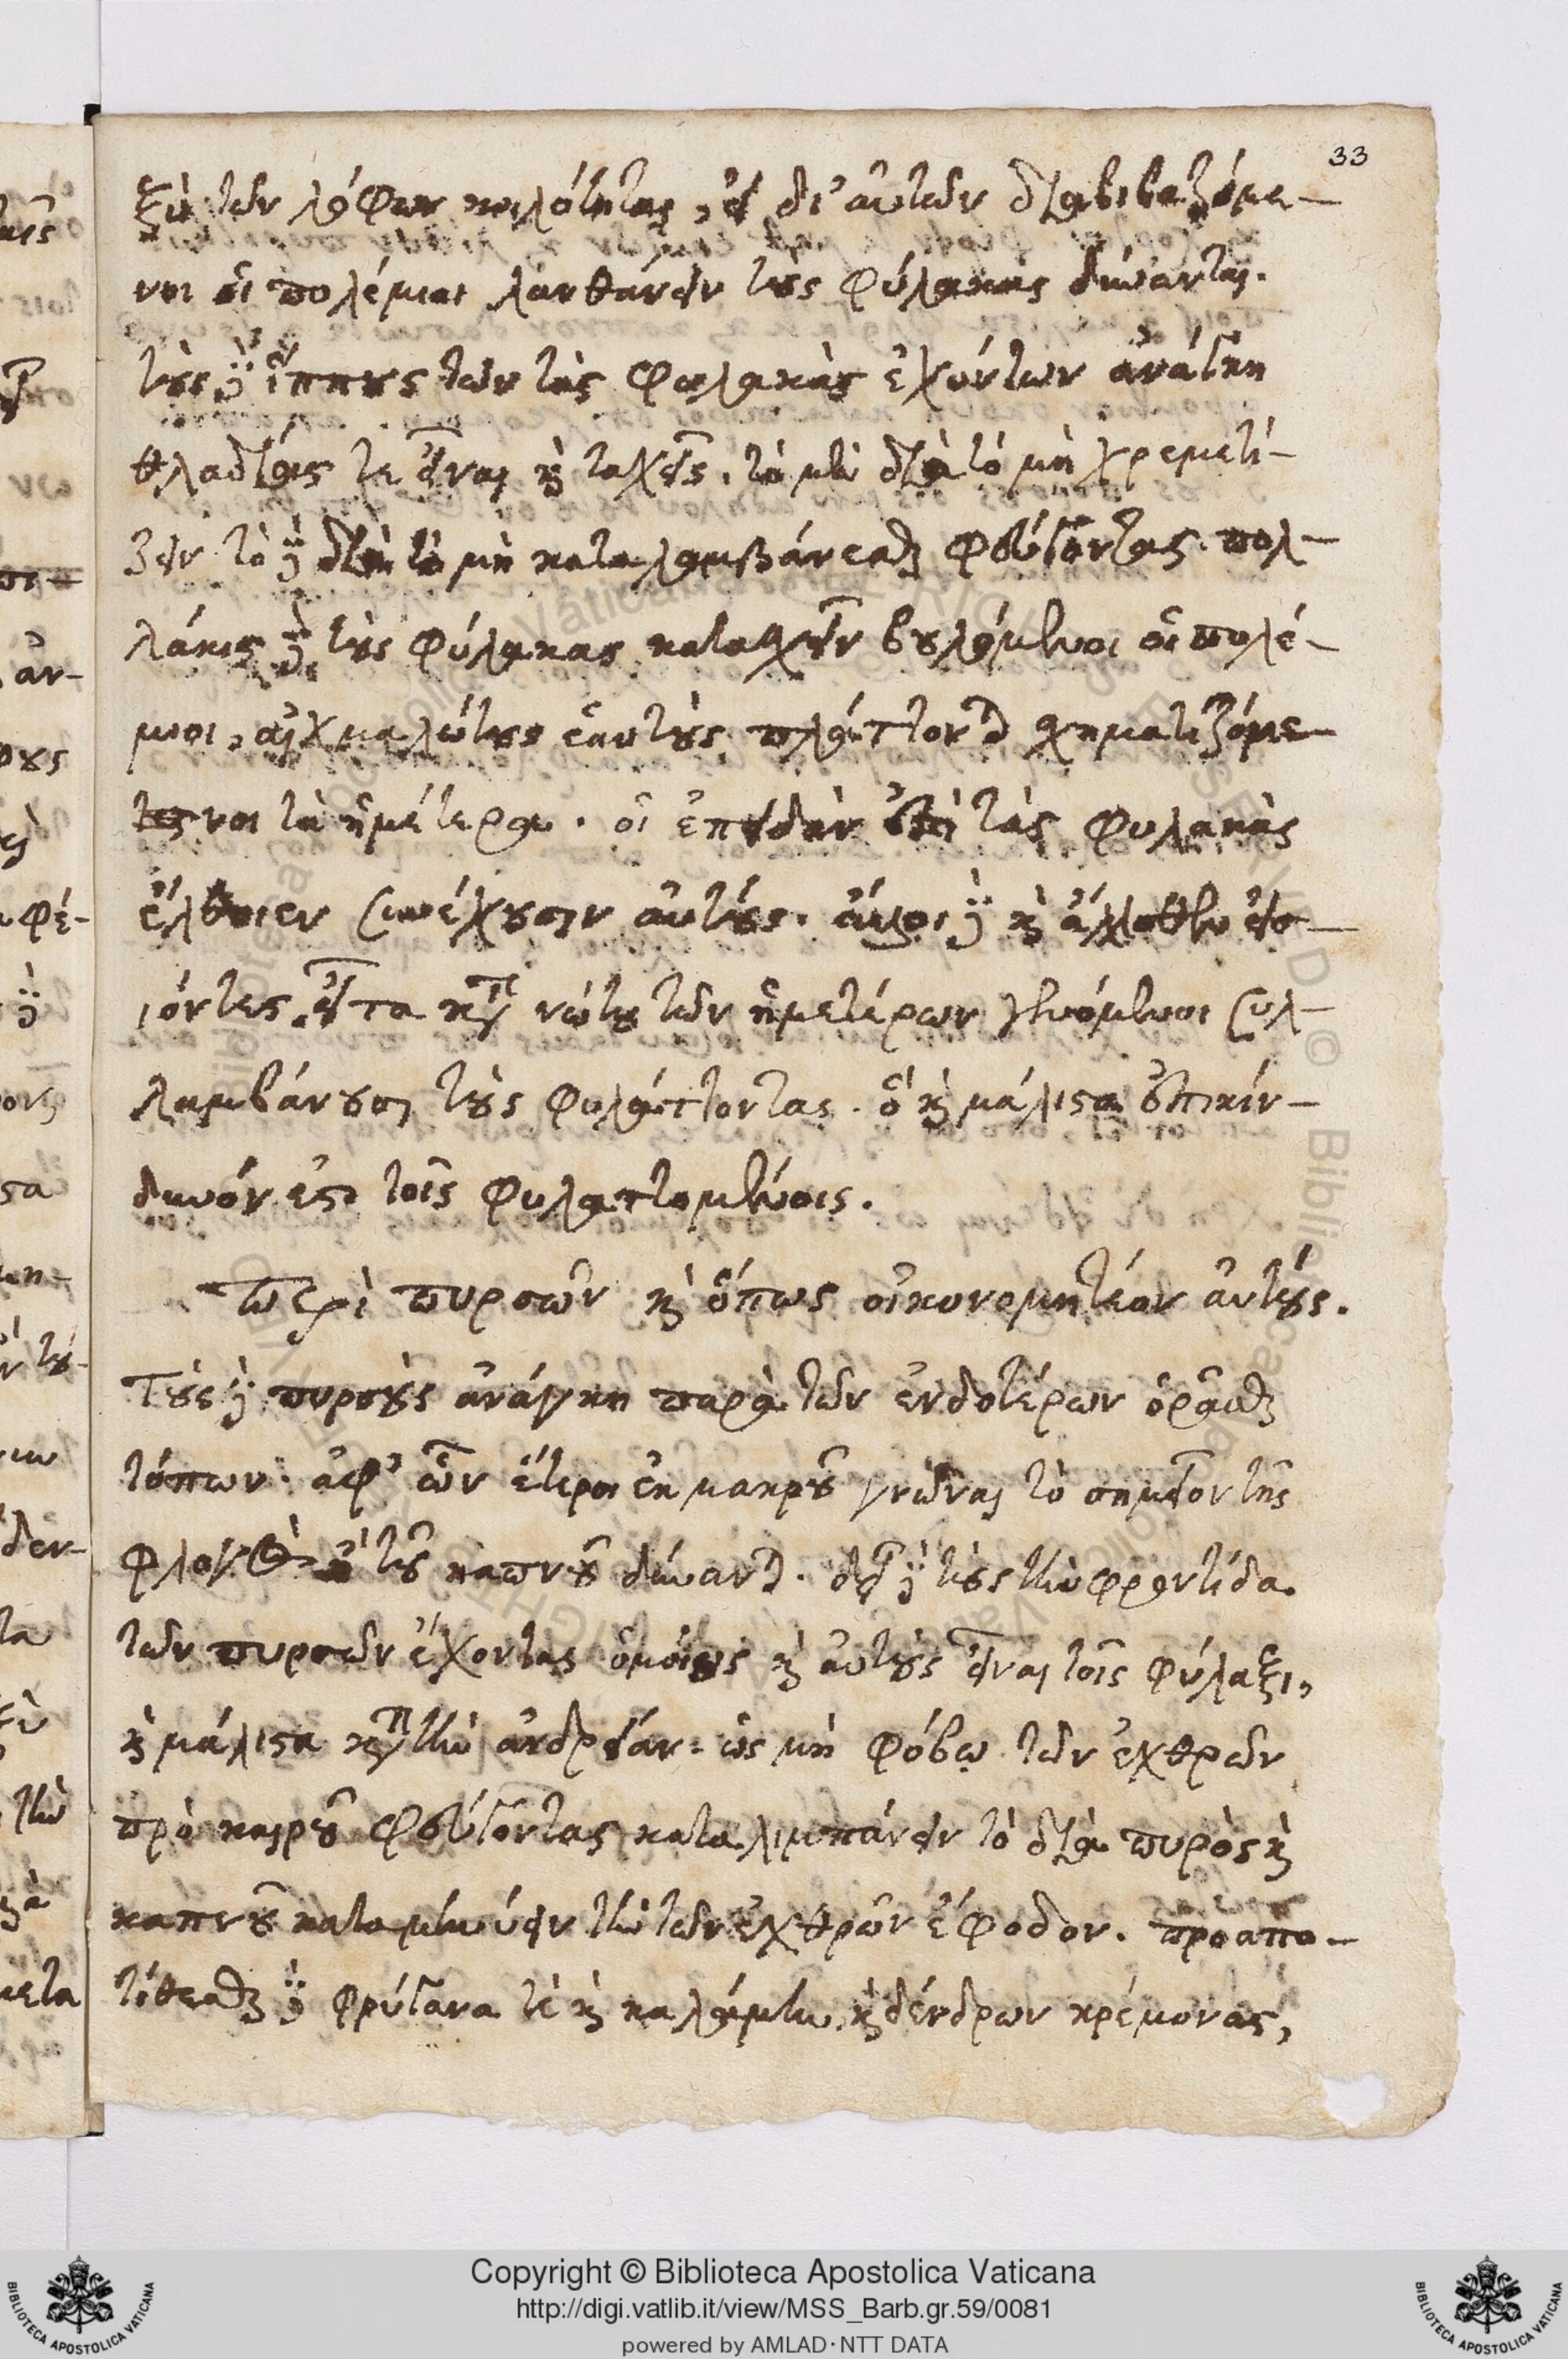 33
ξὺ τῶν λόφων κοιλότητας, εἰ δι' αὐτῶν διαβιβαζόμε-
νοι οἱ πολέμιοι λανθάνειν τοὺς φύλακας δύνανται.
τοὺς δὲ ἵππους τῶν τὰς φυλακὰς ἐχόντων ἀνάγκη
θλαδίας τε εἶναι καὶ ταχεῖς. τὸ μὲν διὰ τὸ μὴ χρεμετί-
ζειν τὸ δὲ διὰ τὸ μὴ καταλαμβάνεσθαι φεύγοντας. πολ-
λάκις δὲ τοὺς φύλακας κατασχεῖν βουλόμενοι οἱ πολέ-
μιοι, αἰχμαλώτους ἑαυτοὺς πλάττονται σχηματιζόμε-
νοι τὰ ἡμέτερα. οἳ ἐπειδὰν ἐπὶ τὰς φυλακὰς
ἔλθοιεν συνέχουσιν αὐτούς. ἄλλοι δὲ καὶ ἄλλοθεν εἰσ-
ιόντες. εἶτα κατὰ νώτου τῶν ἡμετέρων γενόμενοι συλ-
λαμβάνουσι τοὺς φυλάττοντας. ὃ καὶ μάλιστα ἐπικίν-
δυνόν ἐστι τοῖς φυλαττομένοις.
Περὶ πυρσῶν καὶ ὅπως οἰκονομητέον αὐτούς.
Τοὺς δὲ πυρσοὺς ἀνάγκη παρὰ τῶν ἐνδοτέρων ὁρᾶσθαι
τόπων. ἀφ' ὧν ἕτεροι ἐκ μακροῦ γνῶναι τὸ σημεῖον τῆς
φλογὸς ἢ τοῦ καπνοῦ δύνανται. δεῖ δὲ τοὺς τὴν φροντίδα
τῶν πυρσῶν ἔχοντας ὁμοίους καὶ αὐτοὺς εἶναι τοῖς φύλαξι,
καὶ μάλιστα κατὰ τὴν ἀνδρείαν. ὡς μὴ φόβῳ τῶν ἐχθρῶν
πρὸ καιροῦ φεύγοντας καταλιμπάνειν τὸ διὰ πυρὸς καὶ
καπνοῦ καταμηνύειν τὴν τῶν ἐχθρῶν ἔφοδον. προαπο-
τίθεσθαι δὲ φρύγανα τὲ καὶ καλάμην καὶ δένδρων κρέμονας,
Copyright © Biblioteca Apostolica Vaticana
http://digi.vatlib.it/view/MSS_Barb.gr.59/0081
powered by AMLAD·NTT DATA